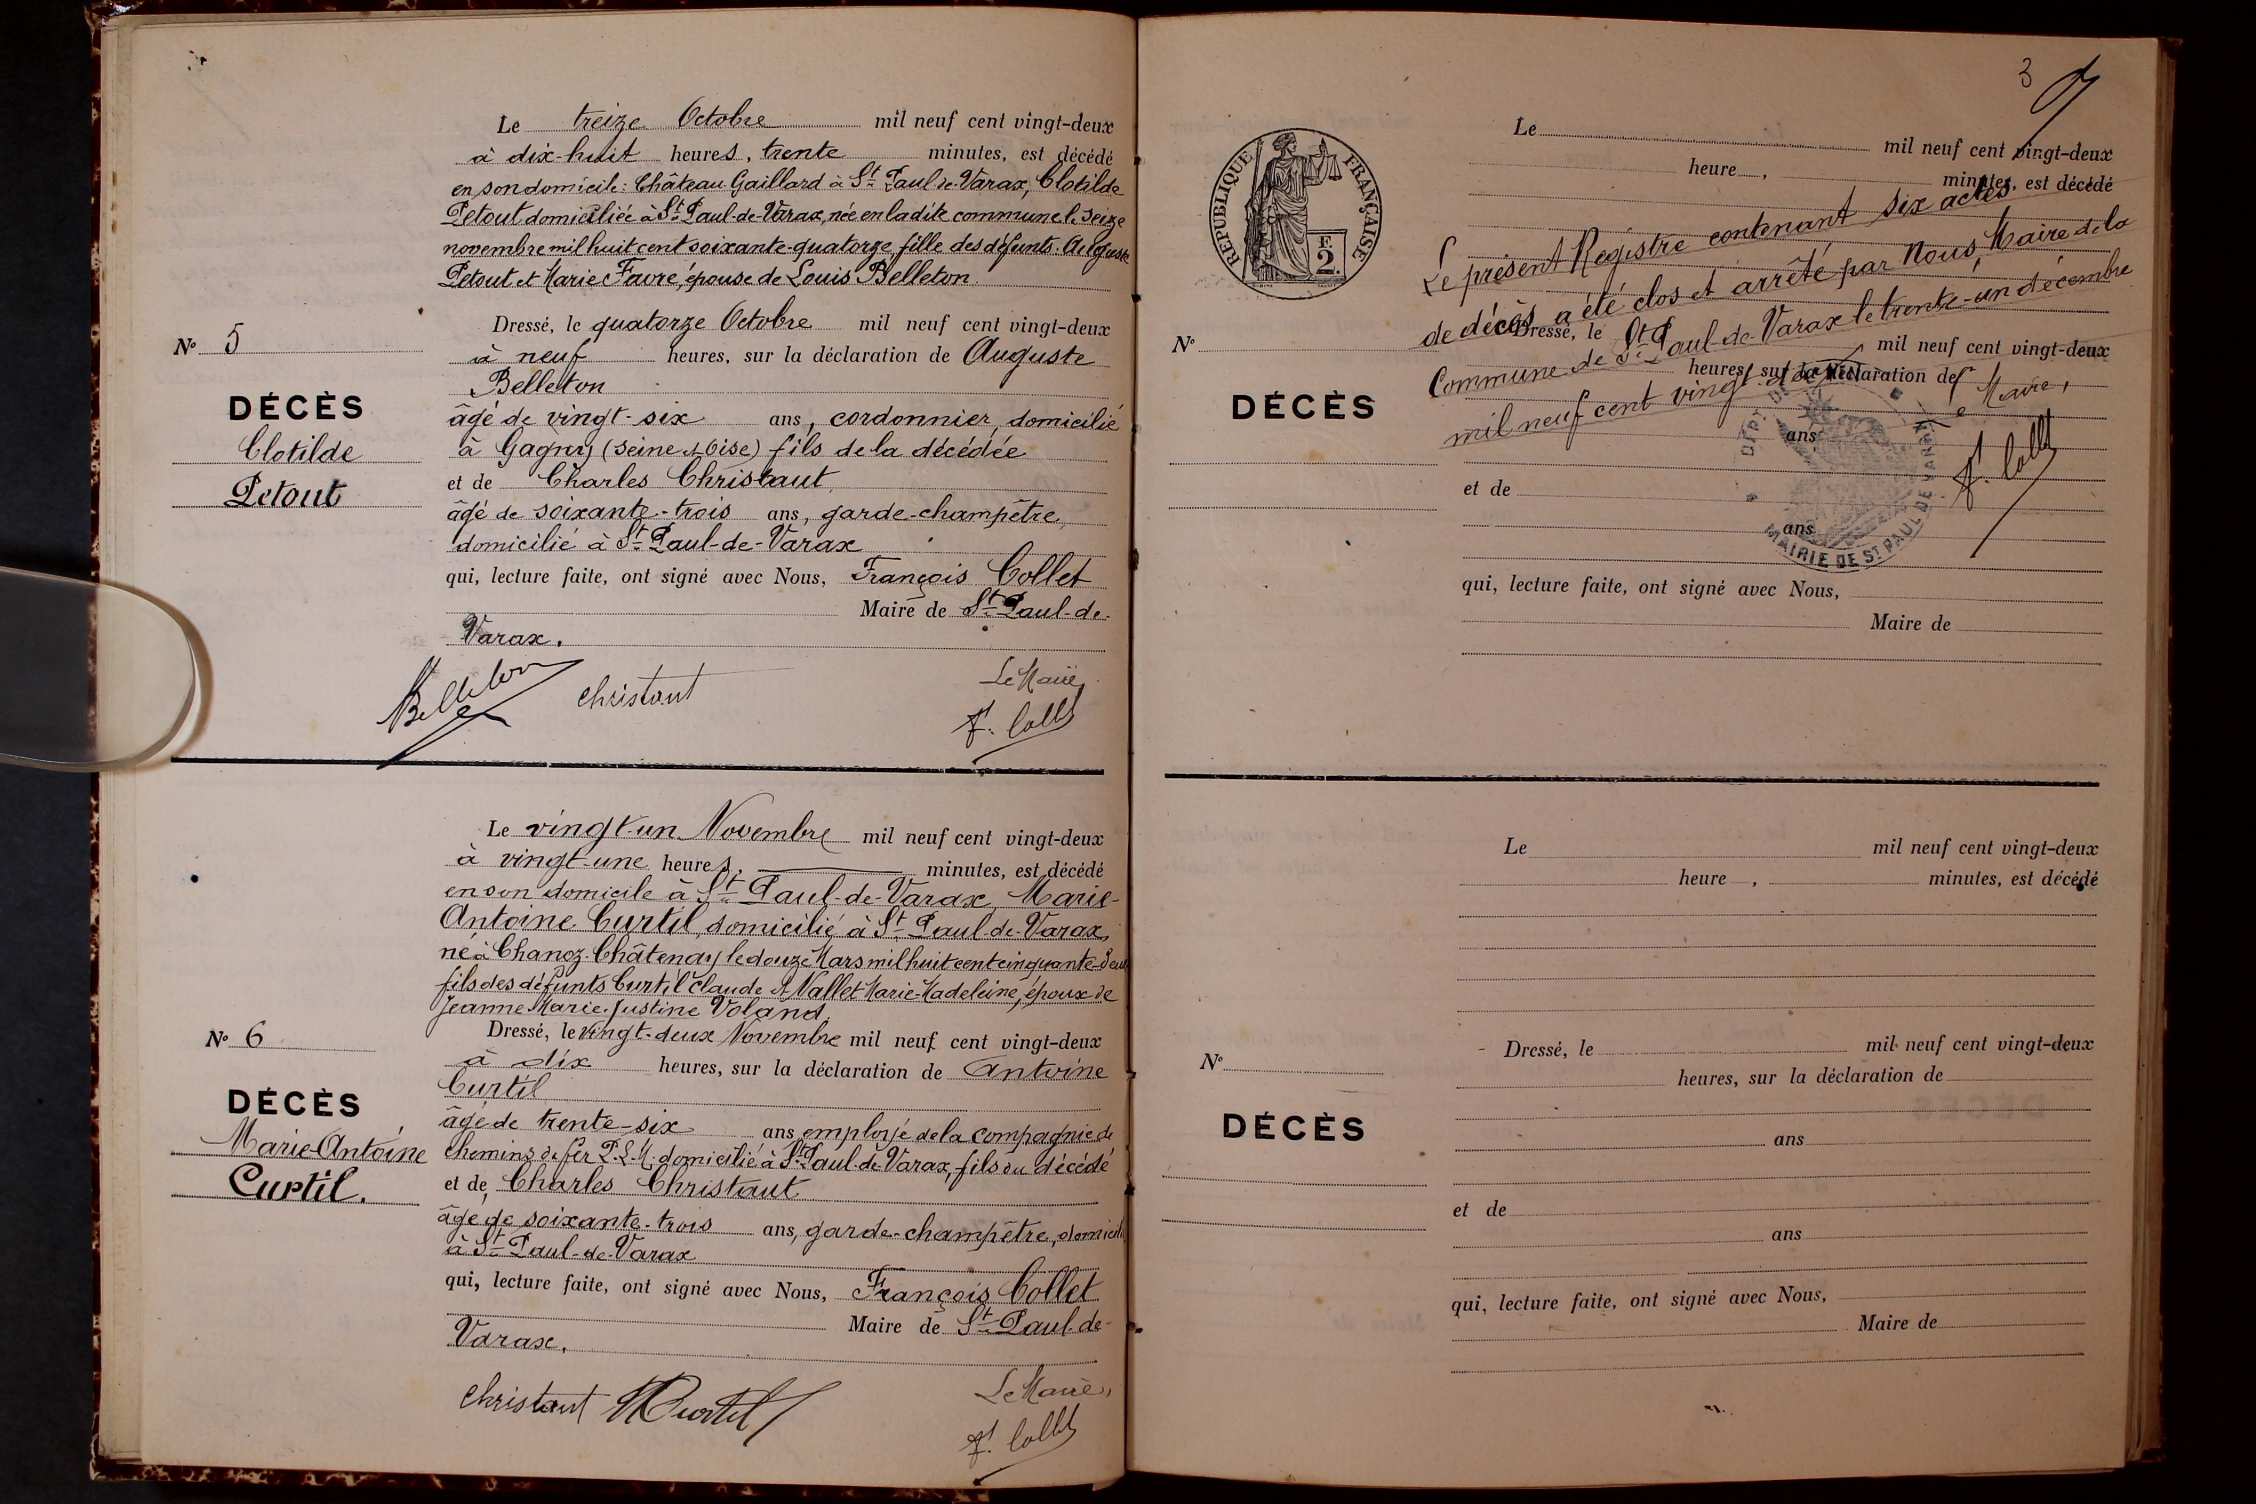 Le treize Octobre mil neuf cent vingt-deux
à dix-huit heures, trente minutes, est décédé
en son domicile: Château Gaillard à St Paul-de-Varax, Clotilde
Petout domiciliée à St Paul-de-Varax, née en la dite commune le seize
novembre mil huit cent soixante-quatorze, fille des défunts Auguste
Petout et Marie Favre, épouse de Louis Belleton.
No 5
DÉCÈS
Clotilde
Petout
Dressé, le quatorze Octobre mil neuf cent vingt-deux
à neuf heures, sur la déclaration de Auguste
Belleton
âgé de vingt-six ans, cordonnier, domicilié
à Gagny (Seine et Oise) fils de la décédée
et de Charles Christaut,
âgé de soixante-trois ans, garde-champêtre,
domicilié à St Paul-de-Varax
qui, lecture faite, ont signé avec Nous, François Collet
Maire de St Paul-de-
Varax.
Belleton christaut Le Maire,
f. Collet
Le vingt-un Novembre mil neuf cent vingt-deux
à vingt-une heures, minutes, est décédé
en son domicile à St Paul-de-Varax, Marie-
Antoine Curtil, domicilié à St Paul-de-Varax,
né à Chanoz-Châtenay le douze Mars mil huit cent cinquante-deux
fils des défunts Curtil Claude et Nallet Marie-Madeleine, époux de
Jeanne Marie Justine Voland.
No 6
DÉCÈS
Marie-Antoine
Curtil.
Dressé, le vingt-deux Novembre mil neuf cent vingt-deux
à dix heures, sur la déclaration de Antoine
Curtil
âgé de trente-six ans, employé de la compagnie de
chemins de fer P.L.M. domicilié à St Paul-de-Varax, fils du décédé
et de Charles Christaut
âgé de soixante-trois ans, garde-champêtre, domicilié
à St Paul-de-Varax
qui, lecture faite, ont signé avec Nous, François Collet
Maire de St Paul-de-
Varax.
christaut Curtil Le Maire,
f. Collet
3
RÉPUBLIQUE FRANÇAISE
F.
2.
Le mil neuf cent vingt-deux
heure, minutes, est décédé
Le présent Registre contenant six actes
de décès a été clos et arrêté par Nous, Maire de la
Commune de St Paul-de-Varax le trente-un décembre
mil neuf cent vingt-deux
Le Maire,
f. Collet
MAIRIE DE ST PAUL DE VARAX
No
DÉCÈS
Dressé, le mil neuf cent vingt-deux
heures, sur la déclaration de
ans
et de
ans
qui, lecture faite, ont signé avec Nous,
Maire de
Le mil neuf cent vingt-deux
heure, minutes, est décédé
No
DÉCÈS
Dressé, le mil neuf cent vingt-deux
heures, sur la déclaration de
ans
et de
ans
qui, lecture faite, ont signé avec Nous,
Maire de